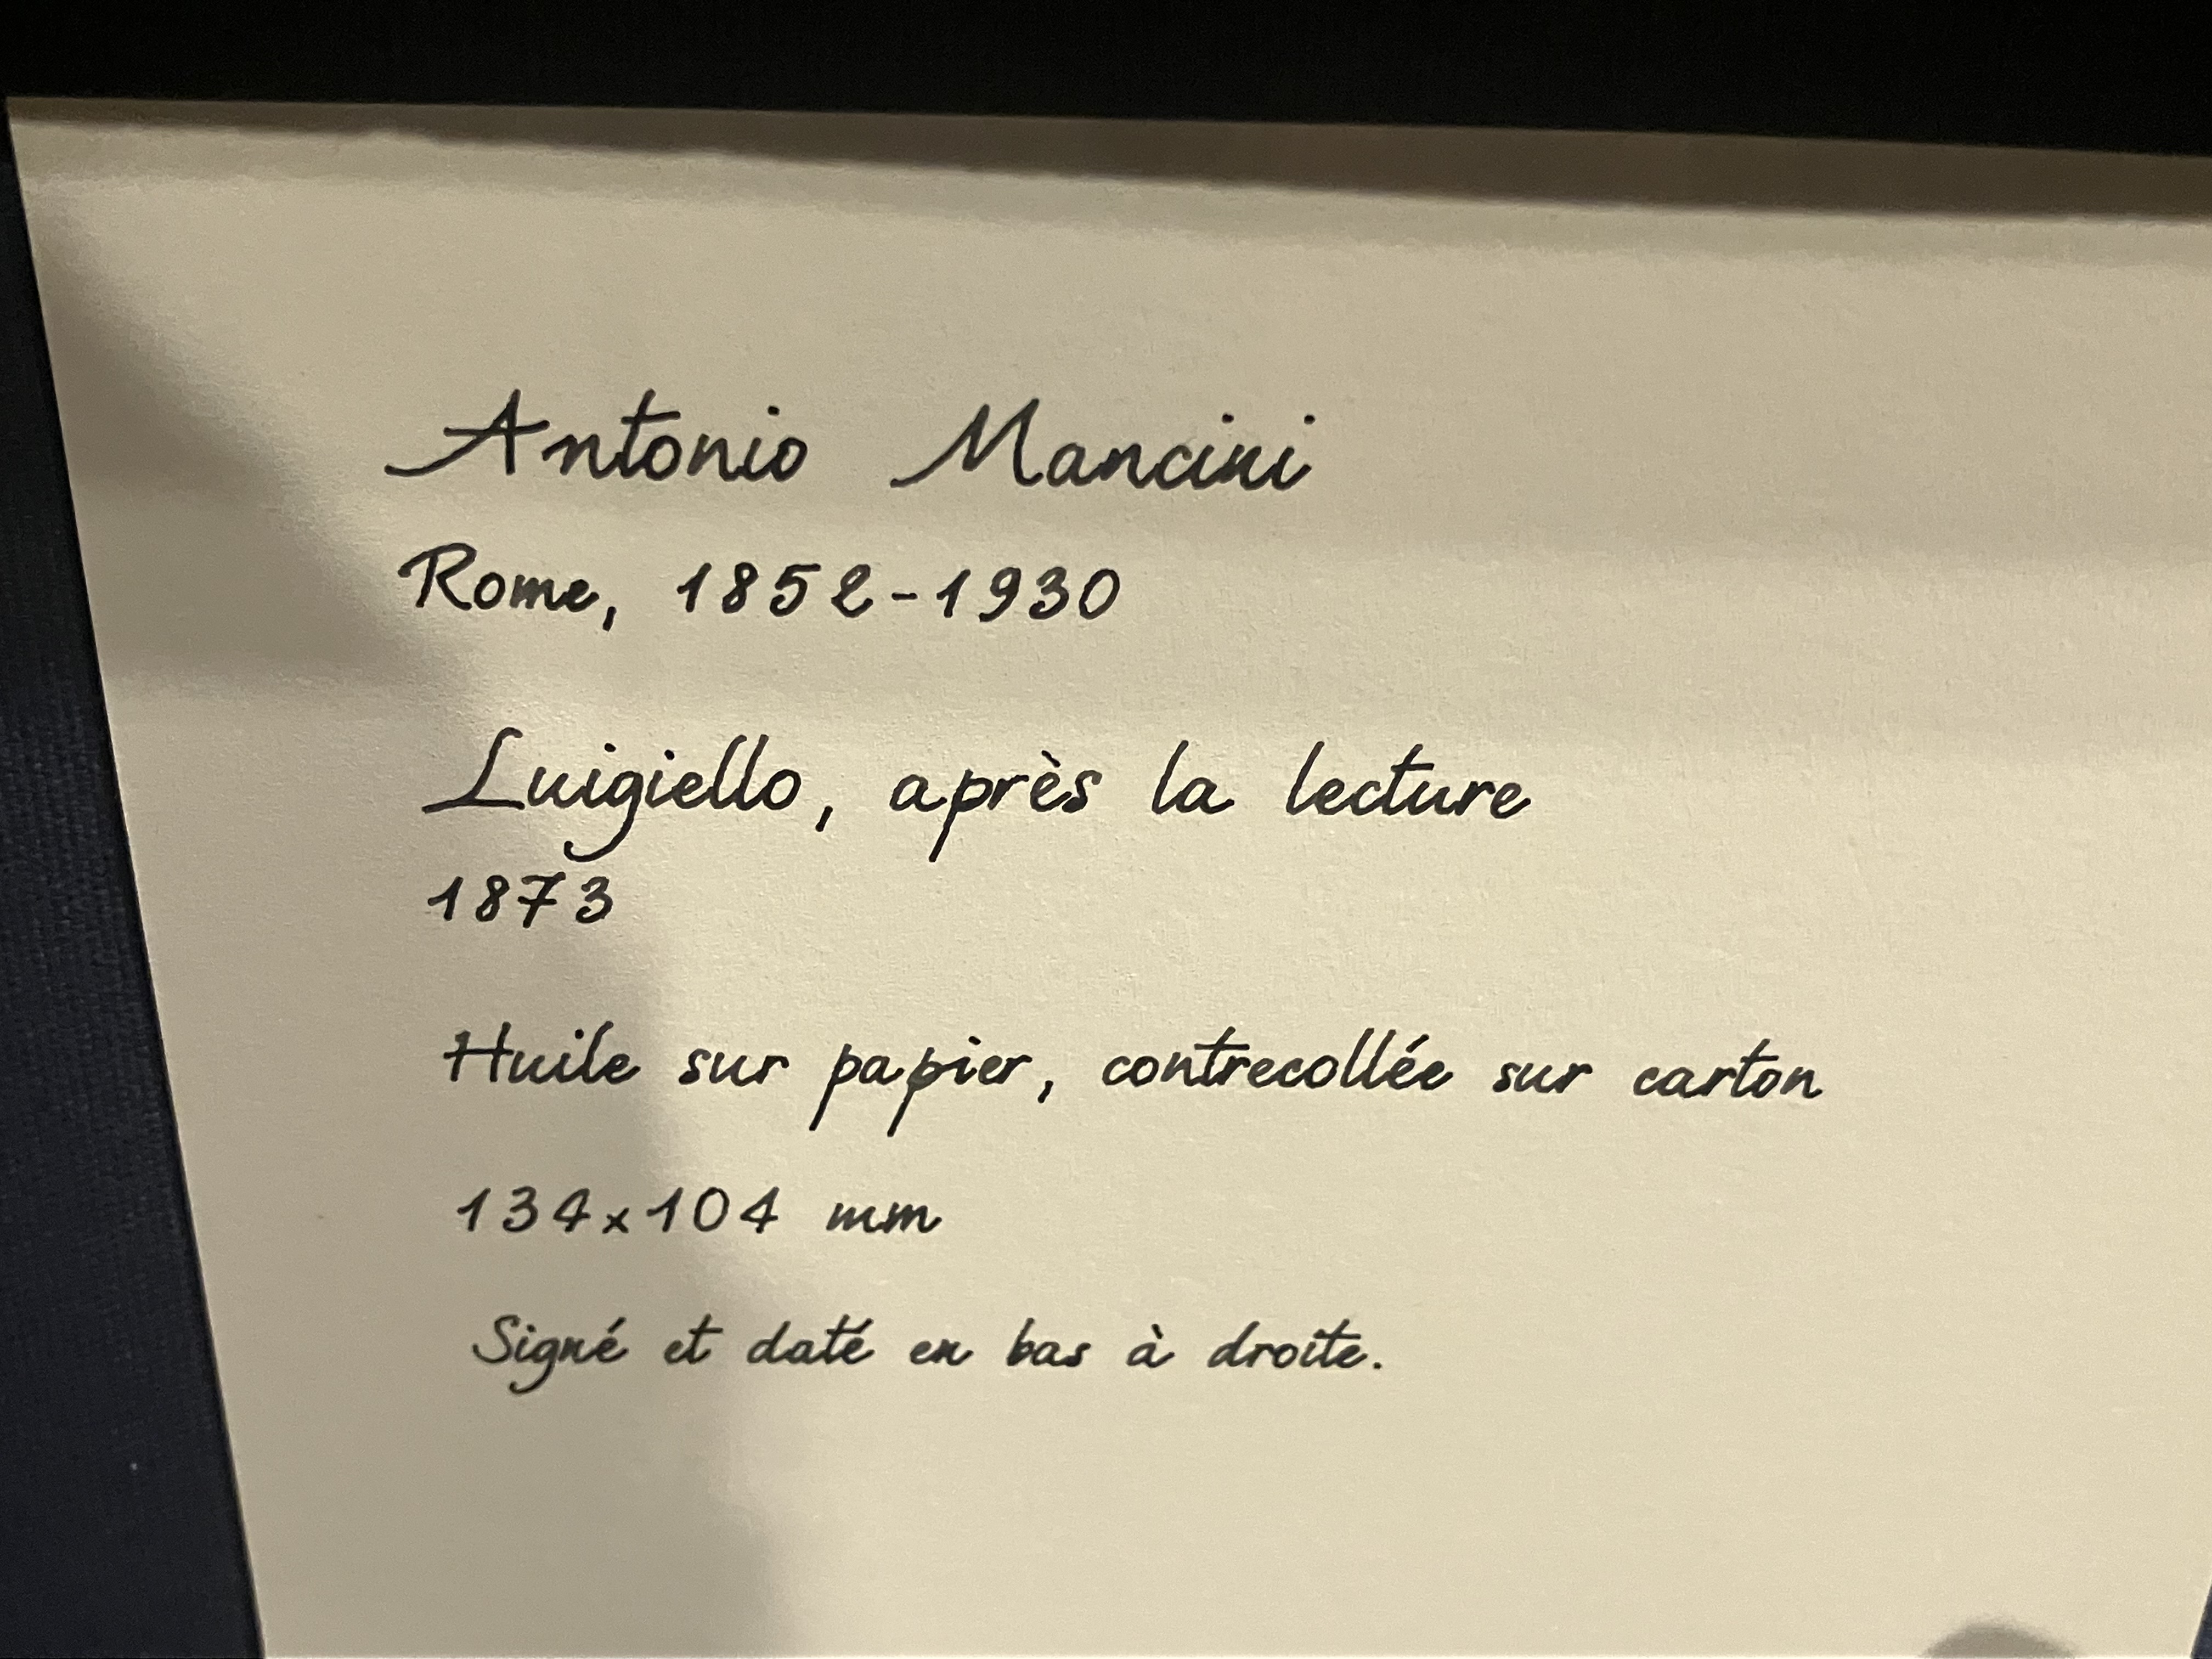 Antonio Mancini
Rome, 1852-1930
Luigiello, après la lecture
1873
Huile sur papier, contrecollée sur carton
134x104 mm
Signé et daté en bas à droite.